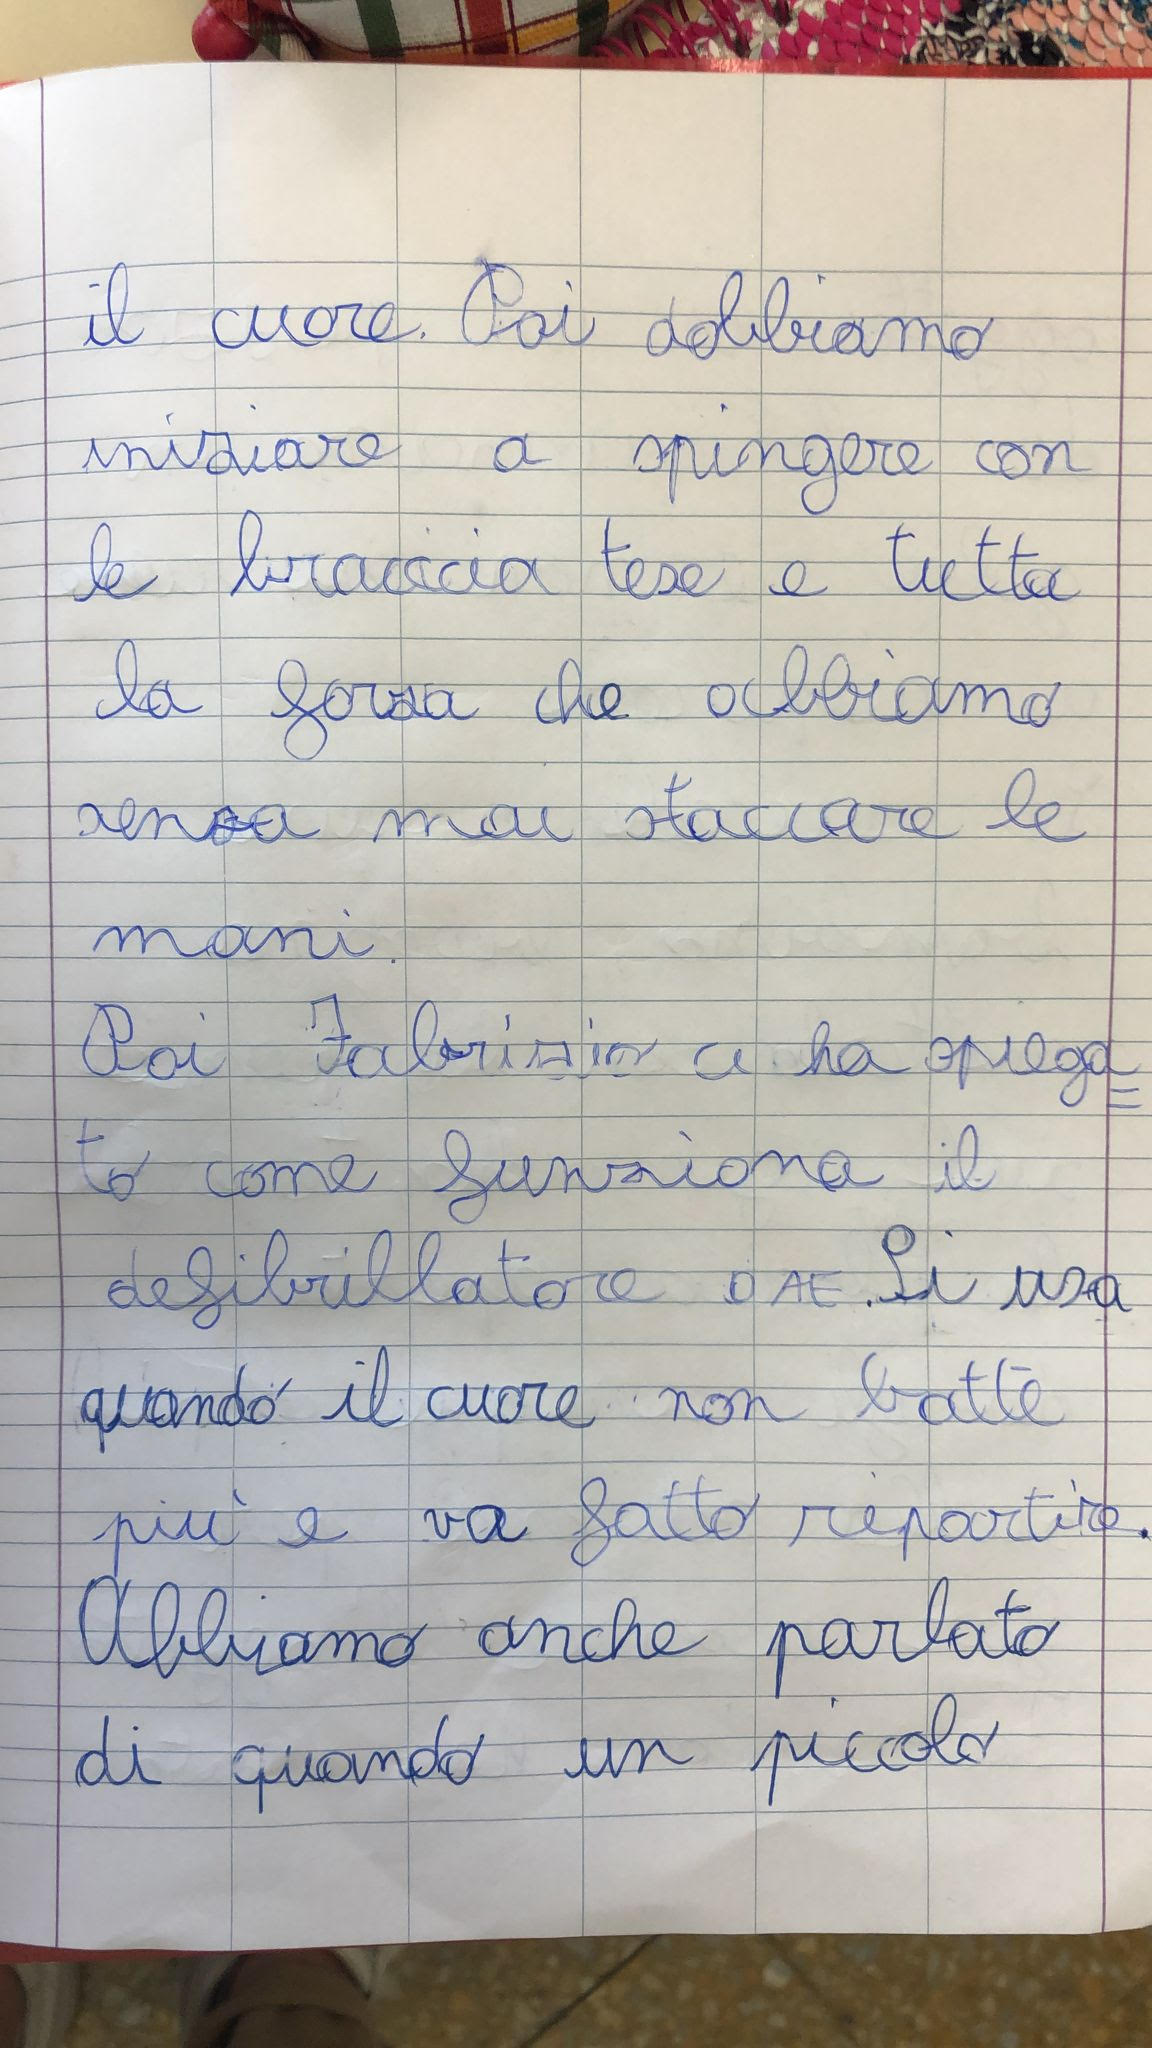 il cuore. Poi dobbiamo
iniziare a spingere con
le braccia tese e tutta
la forza che abbiamo
senza mai staccare le
mani.
Poi Fabrizio ci ha spiega=
to come funziona il
defibrillatore DAE. Si usa
quando il cuore non batte
più e va fatto ripartire.
Abbiamo anche parlato
di quando un piccolo